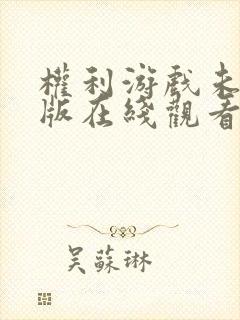 權利游戲未
版在綫觀看
吴蘇琳